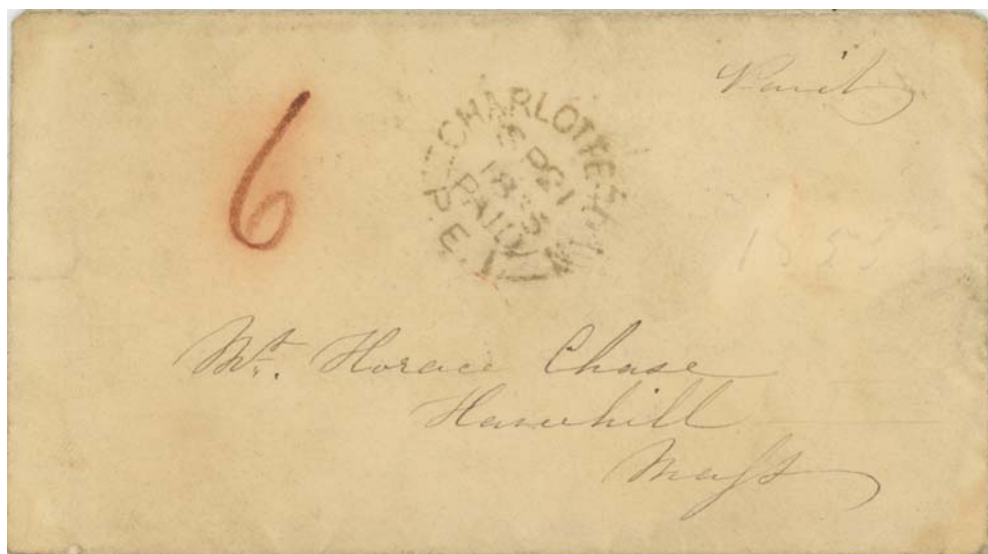 Paid
6
CHARLOTTETOWN
DC 1
PAID
P. E. I.
1855
Mr. Horace Chase
Haverhill
Mass